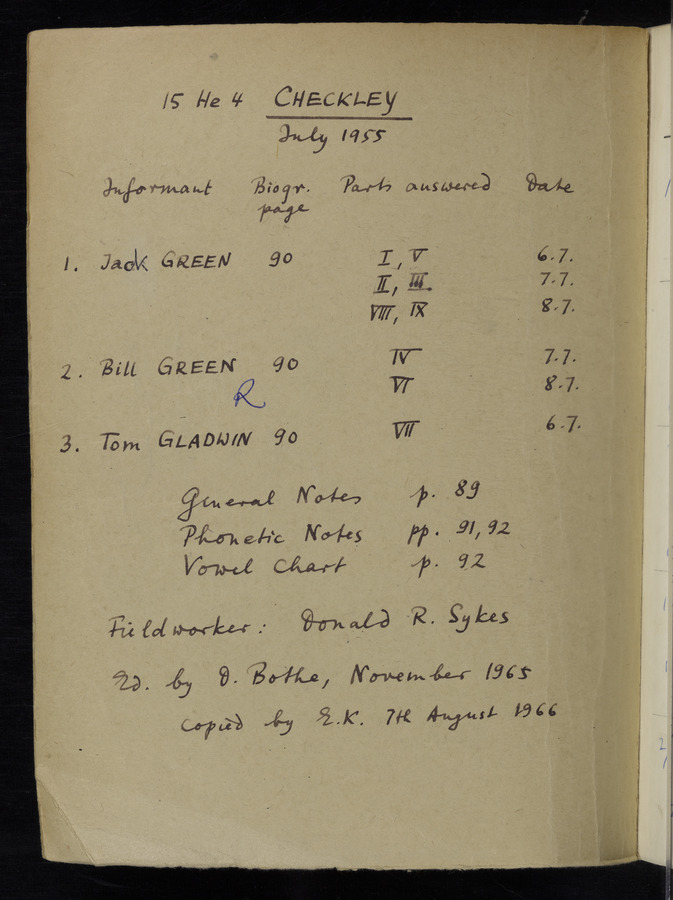 15 He 4 CHECKLEY
July 1955
Informant Biogr. page Parts answered Date
1. Jack GREEN 90 I, V 6.7.
II, III. 7.7.
VIII, IX 8.7.
2. Bill GREEN 90 IV 7.7.
R VI 8.7.
3. Tom GLADWIN 90 VII 6.7.
General Notes p. 89
Phonetic Notes pp. 91, 92
Vowel Chart p. 92
Fieldworker: Donald R. Sykes
Ed. by D. Bothe, November 1965
Copied by E.K. 7th August 1966